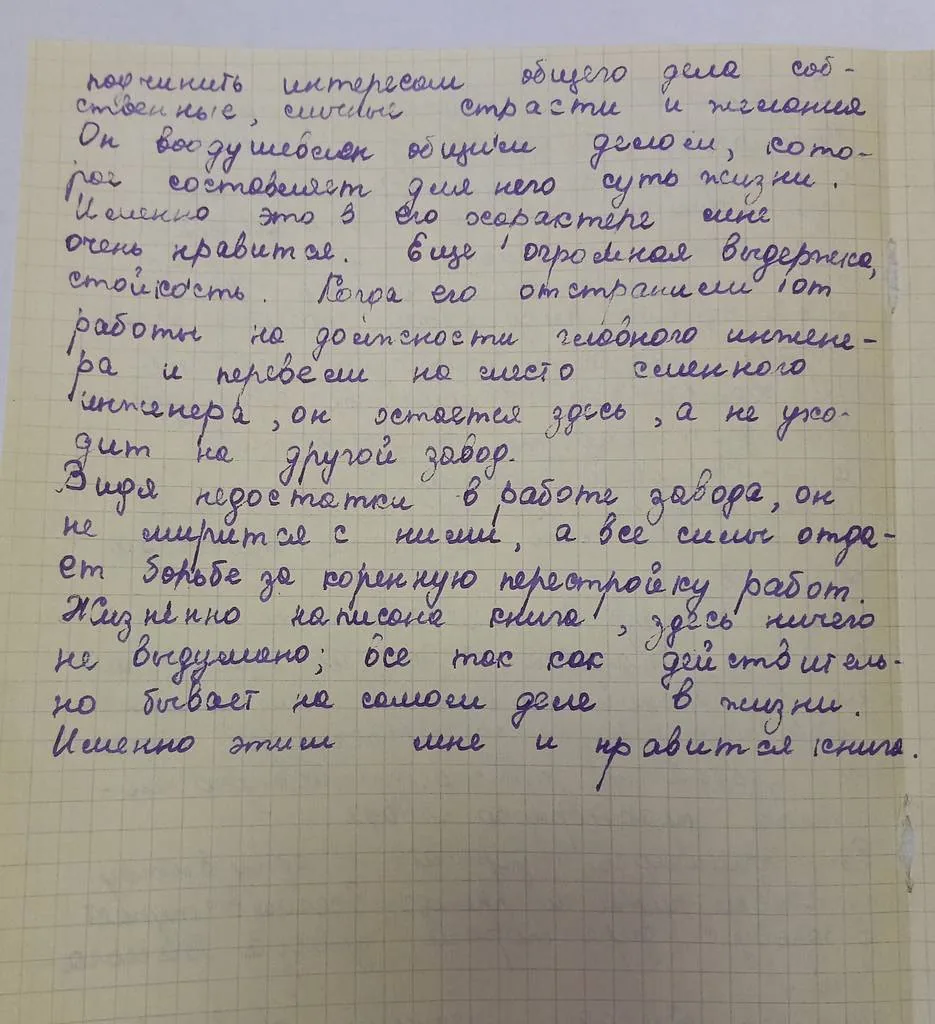 подчинить интересам общего дела соб-
ственные, личные страсти и желания
Он воодушевлен общим делом, кото-
рое составляет для него суть жизни.
Именно это в его характере мне
очень нравится. Еще огромная выдержка,
стойкость. Когда его отстранили от
работы на должности главного инжене-
ра и перевели на место сменного
инженера, он остается здесь, а не ухо-
дит на другой завод.
Видя недостатки в работе завода, он
не мирится с ними, а все силы отда-
ет борьбе за коренную перестройку работ.
Жизненно написана книга, здесь ничего
не выдумано; все так как действитель-
но бывает на самом деле в жизни.
Именно этим мне и нравится книга.